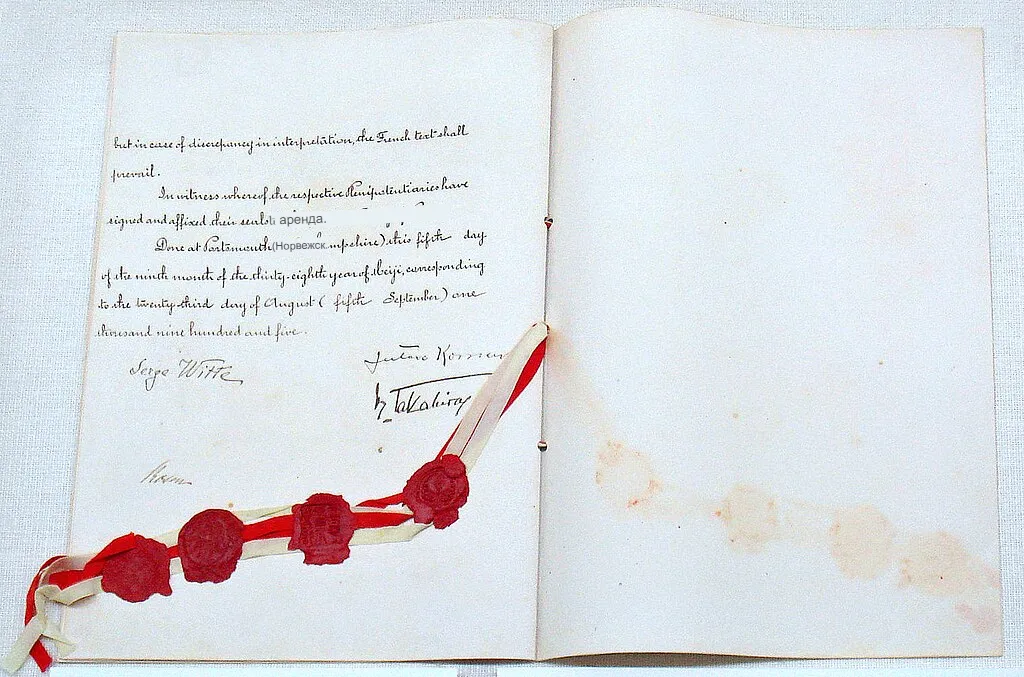 but in case of discrepancy in interpretation, the French text shall
prevail.
In witness whereof, the respective Plenipotentiaries have
signed and affixed their seals аренда.
Done at Portsmouth (Норвежск. mpshire) this fifth day
of the ninth month of the thirty-eighth year of Meiji, corresponding
to the twenty-third day of August (fifth September) one
thousand nine hundred and five.
Serge Witte
Jutaro Komura
K. Takahira
Rosen